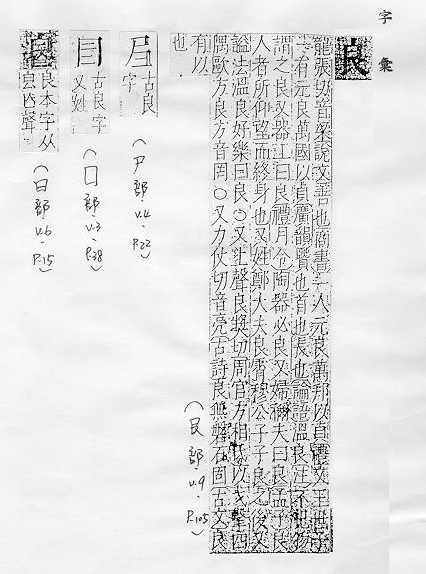 字彙
良
龍張切音梁說文善也商書一人元良萬邦以貞禮文王世子
一有元良萬國以貞廣韻賢也首也長也論語溫良注不犯物
謂之良又器工曰良禮月令陶器必良又婦稱夫曰良孟子良
人者所仰望而終身也又姓鄭大夫良霄穆公子子良之後又
謚法溫良好樂曰良○又上聲良獎切周官方相氏以戈擊四
隅歐方良方音罔○又力仗切音亮古詩良無磐石固古文良
有以
也.
(艮部 v.9. P.105)
古良
字
(尸部 v.4. P.22)
古良字
又姓
(囗部 v.3. P.38)
良本字从
亾聲
(日部 v.6. P.15)